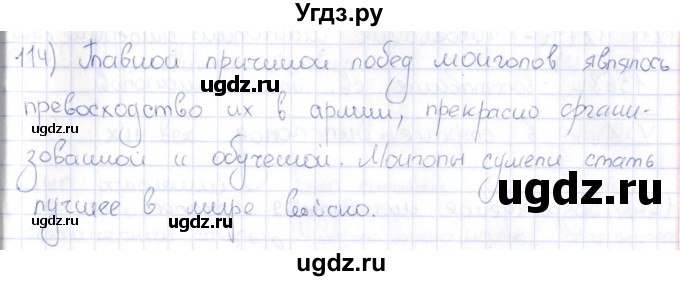 Угдз.ру
114) Главной причиной побед монголов являлось
ugdz.ru ugdz.ru
превосходство их в армии, прекрасно органи-
ugdz.ru
зованной и обученной. Монголы сумели стать
ugdz.ru
лучшее в мире войско.
ugdz.ru ugdz.ru
ugdz.ru